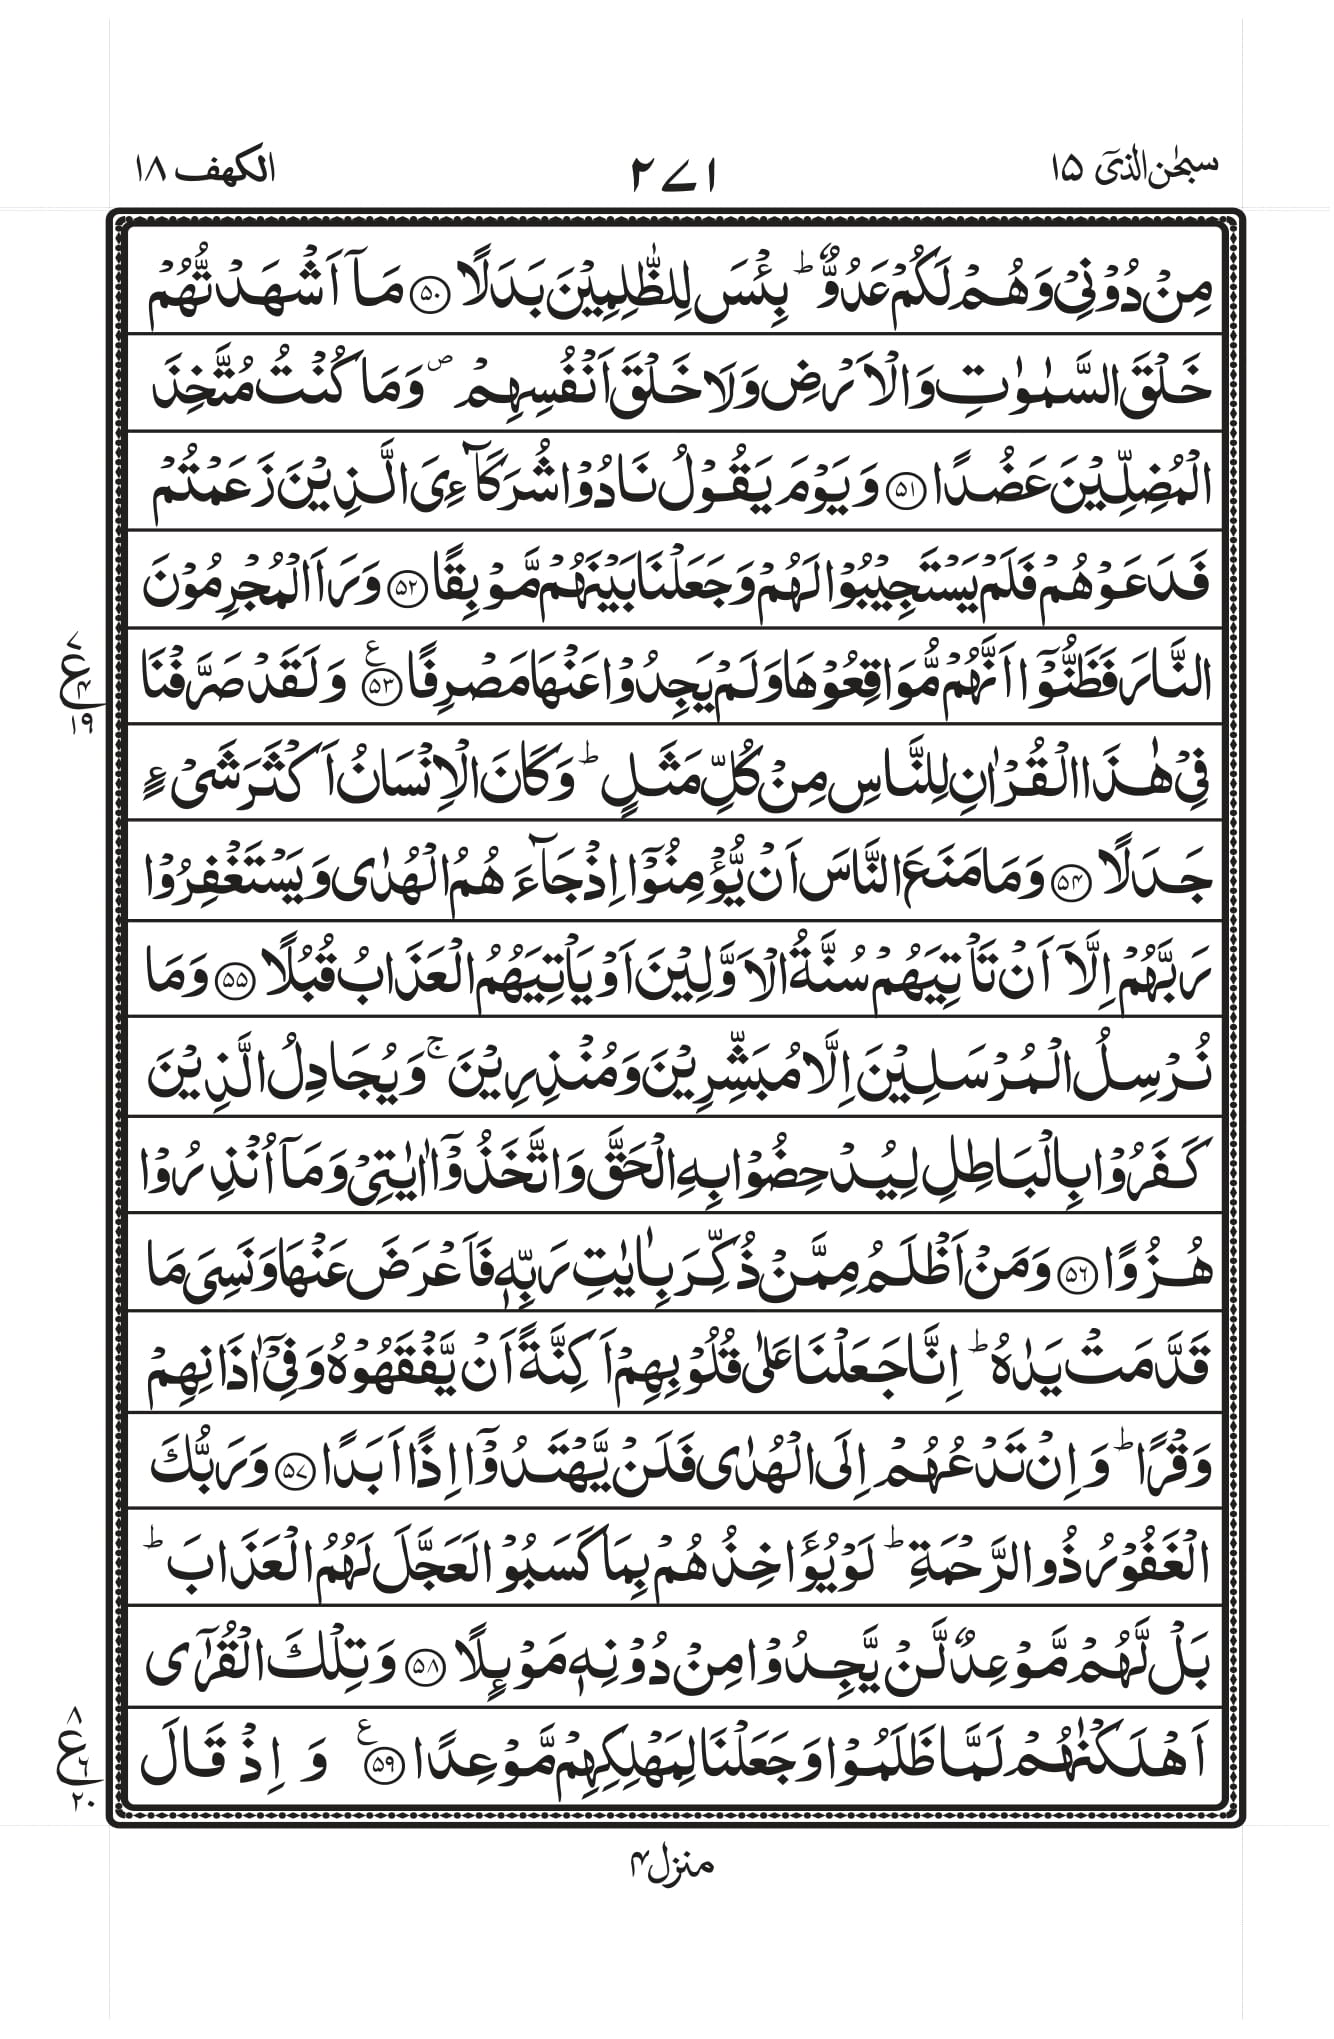 سبحٰن الذیٓ ۱۵
۲۷۱
الکهف ۱۸
مِنْ دُوْنِیْ وَهُمْ لَكُمْ عَدُوٌّ ؕ بِئْسَ لِلظّٰلِمِیْنَ بَدَلًا ۵۰ مَاۤ اَشْهَدْتُّهُمْ
خَلْقَ السَّمٰوٰتِ وَالْاَرْضِ وَلَا خَلْقَ اَنْفُسِهِمْ ص وَمَا كُنْتُ مُتَّخِذَ
الْمُضِلِّیْنَ عَضُدًا ۵۱ وَیَوْمَ یَقُوْلُ نَادُوْا شُرَكَآءِیَ الَّذِیْنَ زَعَمْتُمْ
فَدَعَوْهُمْ فَلَمْ یَسْتَجِیْبُوْا لَهُمْ وَجَعَلْنَا بَیْنَهُمْ مَّوْبِقًا ۵۲ وَرَاَ الْمُجْرِمُوْنَ
النَّارَ فَظَنُّوْۤا اَنَّهُمْ مُّوَاقِعُوْهَا وَلَمْ یَجِدُوْا عَنْهَا مَصْرِفًا ۵۳ ع وَلَقَدْ صَرَّفْنَا
۷ ع ۴ ۱۹
فِیْ هٰذَا الْقُرْاٰنِ لِلنَّاسِ مِنْ كُلِّ مَثَلٍ ؕ وَكَانَ الْاِنْسَانُ اَكْثَرَ شَیْءٍ
جَدَلًا ۵۴ وَمَا مَنَعَ النَّاسَ اَنْ یُّؤْمِنُوْۤا اِذْ جَآءَ هُمُ الْهُدٰی وَیَسْتَغْفِرُوْا
رَبَّهُمْ اِلَّاۤ اَنْ تَاْتِیَهُمْ سُنَّةُ الْاَوَّلِیْنَ اَوْ یَاْتِیَهُمُ الْعَذَابُ قُبُلًا ۵۵ وَمَا
نُرْسِلُ الْمُرْسَلِیْنَ اِلَّا مُبَشِّرِیْنَ وَمُنْذِرِیْنَ ۚ وَیُجَادِلُ الَّذِیْنَ
كَفَرُوْا بِالْبَاطِلِ لِیُدْحِضُوْا بِهِ الْحَقَّ وَاتَّخَذُوْۤا اٰیٰتِیْ وَمَاۤ اُنْذِرُوْا
هُزُوًا ۵۶ وَمَنْ اَظْلَمُ مِمَّنْ ذُكِّرَ بِاٰیٰتِ رَبِّهٖ فَاَعْرَضَ عَنْهَا وَنَسِیَ مَا
قَدَّمَتْ یَدٰهُ ؕ اِنَّا جَعَلْنَا عَلٰی قُلُوْبِهِمْ اَكِنَّةً اَنْ یَّفْقَهُوْهُ وَفِیْۤ اٰذَانِهِمْ
وَقْرًا ؕ وَاِنْ تَدْعُهُمْ اِلَی الْهُدٰی فَلَنْ یَّهْتَدُوْۤا اِذًا اَبَدًا ۵۷ وَرَبُّكَ
الْغَفُوْرُ ذُو الرَّحْمَةِ ؕ لَوْ یُؤَاخِذُهُمْ بِمَا كَسَبُوْا لَعَجَّلَ لَهُمُ الْعَذَابَ ؕ
بَلْ لَّهُمْ مَّوْعِدٌ لَّنْ یَّجِدُوْا مِنْ دُوْنِهٖ مَوْىِٕلًا ۵۸ وَتِلْكَ الْقُرٰۤی
اَهْلَكْنٰهُمْ لَمَّا ظَلَمُوْا وَجَعَلْنَا لِمَهْلِكِهِمْ مَّوْعِدًا ۵۹ ع وَاِذْ قَالَ
۸ ع ۶ ۲۰
منزل ۴